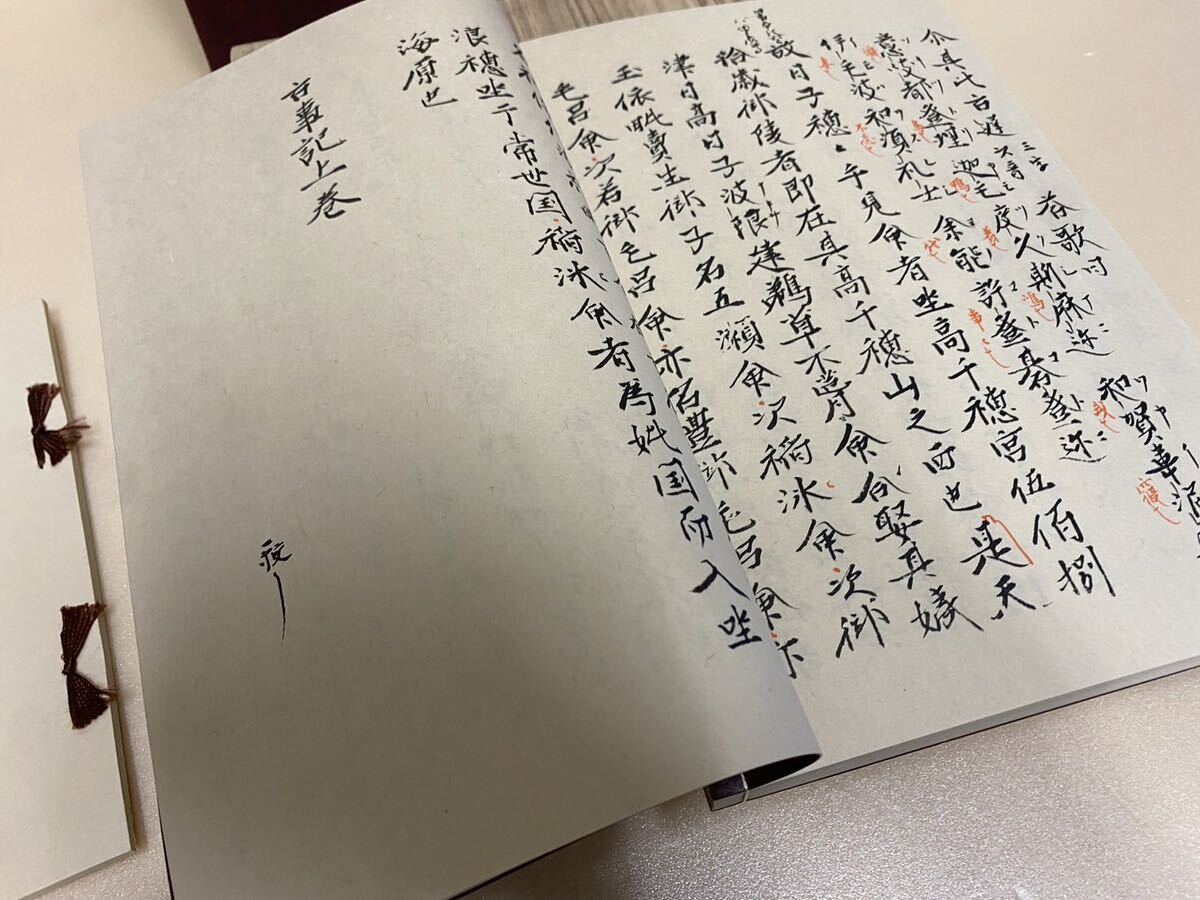 尒其比古遅 三字 荅歌曰
意岐都登理 迦毛度久斯麻迩 和賀韋泥
伊毛波和須礼士 余能許登碁登迩
故日子穂々手見命者坐高千穂宮伍佰捌
拾歳御陵者即在其高千穂山之西也是天
津日高日子波限建鵜草不葺命合娶其姨
玉依毗賣生御子名五瀬命次稲氷命次御
毛呂命次若御毛呂命亦名豊御毛呂命亦
浪穂坐于常世国稲氷命者為妣国而入坐
海原也
古事記上巻